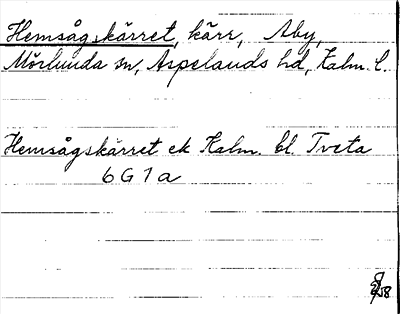 Hemsågskärret, kärr, Åby,
Mörlunda sn, Aspelands hd, Kalm. l.
Hemsågskärret ek Kalm. bl. Tveta
6G1a